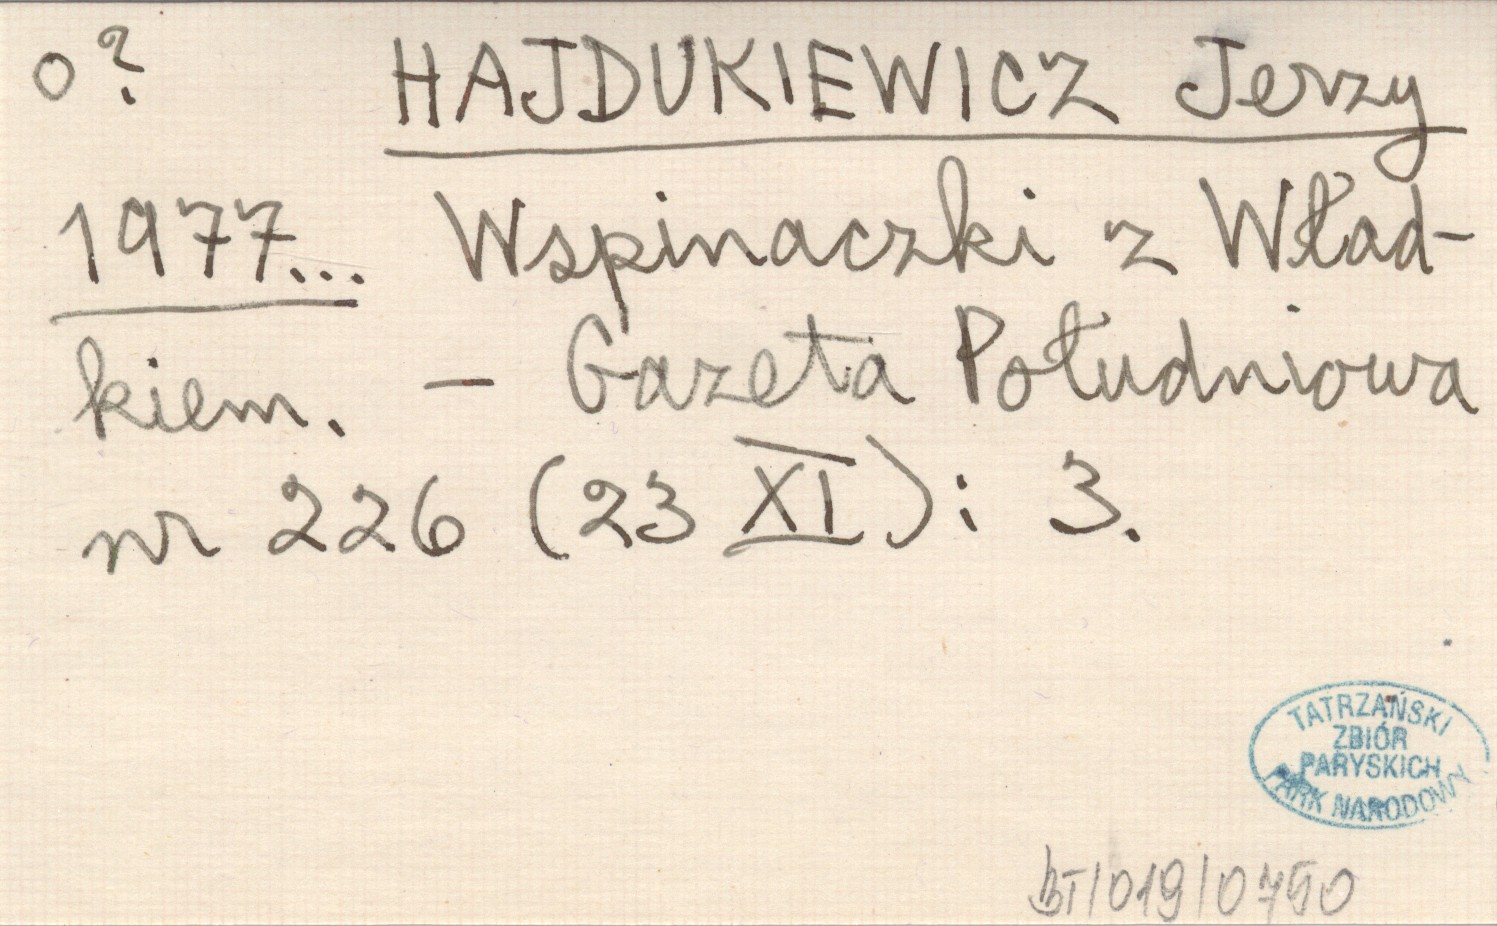 o? HAJDUKIEWICZ Jerzy
1977... Wspinaczki z Wład-
kiem. — Gazeta Południowa
nr 226 (23 XI): 3.
TATRZAŃSKI
ZBIÓR
PARYSKICH
PARK NARODOWY
BT/019/0750